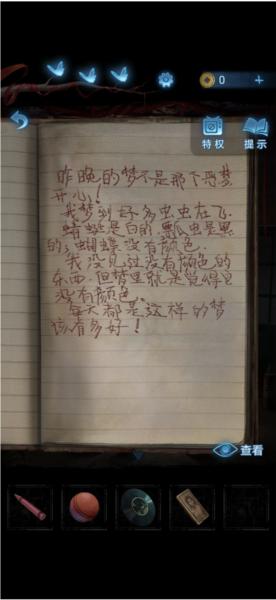 0
+
特权
提示
昨晚的梦不是那个恶梦
开心!
我梦到好多虫虫在飞.
蜻蜓是白的瓢虫是黑
的,蝴蝶没有颜色.
我没见过没有颜色的
东西.但梦里就是觉得它
没有颜色.
每天都是这样的梦
该有多好!
查看